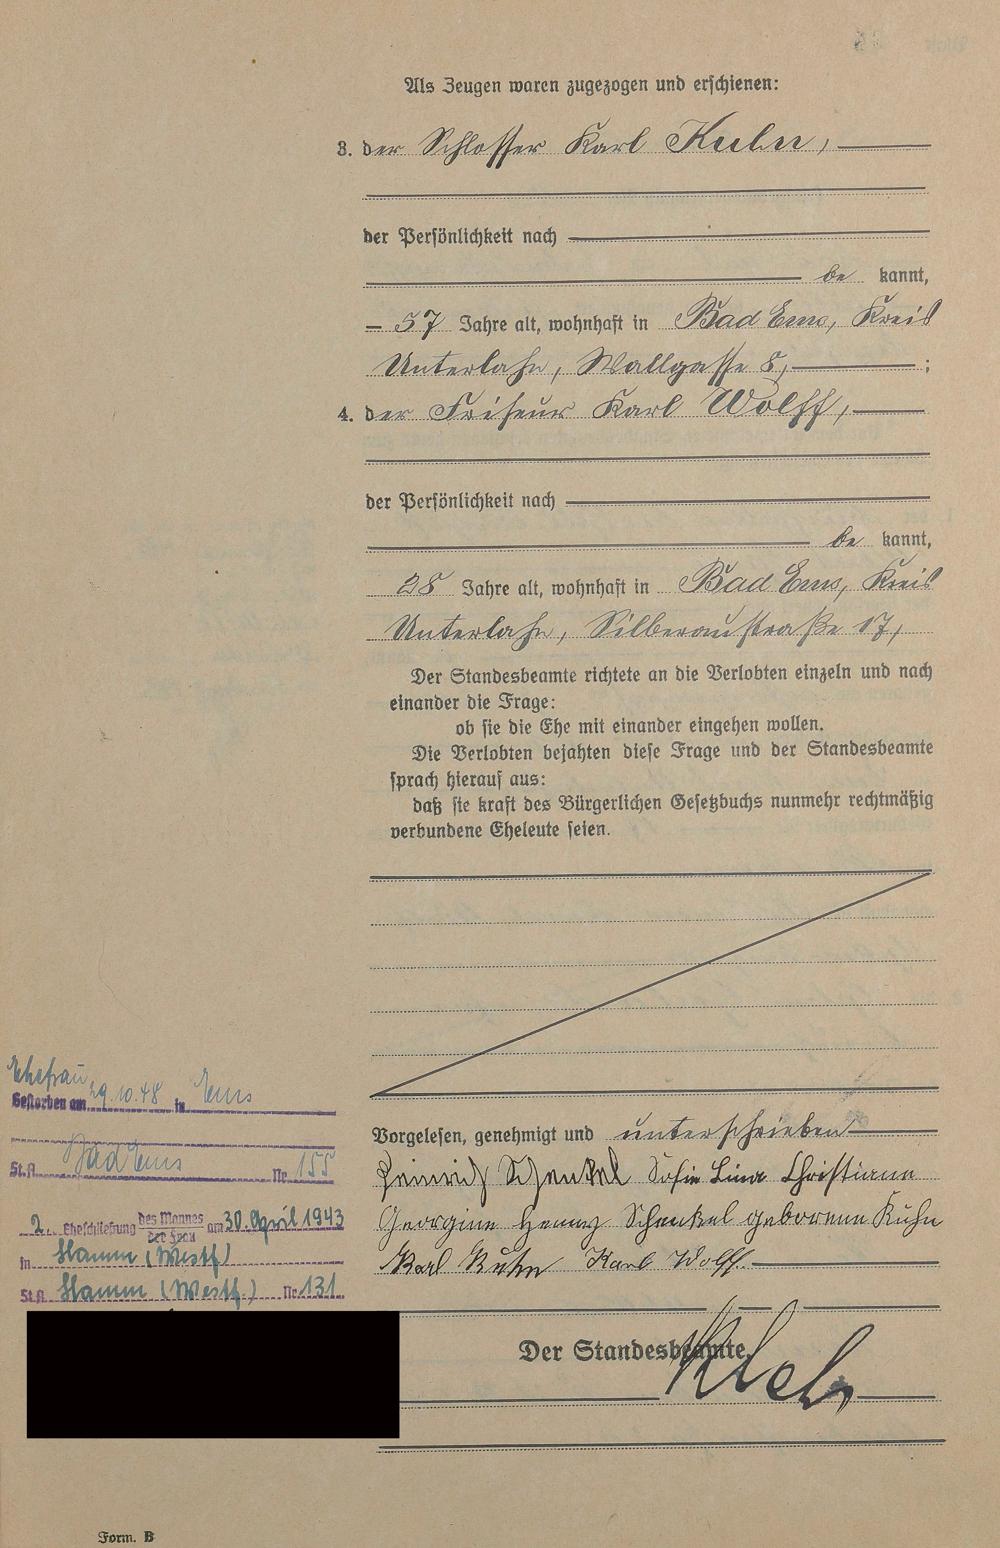 Als Zeugen waren zugezogen und erschienen:
3. der Schlosser Karl Kuhn,
der Persönlichkeit nach
be kannt,
57 Jahre alt, wohnhaft in Bad Ems, Kreis
Unterlahn, Wallgasse 8, ;
4. der Friseur Karl Wolff,
der Persönlichkeit nach
be kannt,
28 Jahre alt, wohnhaft in Bad Ems, Kreis
Unterlahn, Silberaustraße 17,
Der Standesbeamte richtete an die Verlobten einzeln und nach
einander die Frage:
ob sie die Ehe mit einander eingehen wollen.
Die Verlobten bejahten diese Frage und der Standesbeamte
sprach hierauf aus:
daß sie kraft des Bürgerlichen Gesetzbuchs nunmehr rechtmäßig
verbundene Eheleute seien.
Vorgelesen, genehmigt und unterschrieben
Heinrich Schenkel Sofie Lina Christiane
Georgine Henny Schenkel geborene Kuhn
Karl Kuhn Karl Wolff.
Der Standesbeamte.
Ehefrau
Gestorben am 29.10.48 in Ems
St.A. Bad Ems Nr. 155
2. Eheschließung des Mannes
der Frau am 30. April 1943
in Hamm (Westf)
St.A. Hamm (Westf.) Nr. 131
Form. B